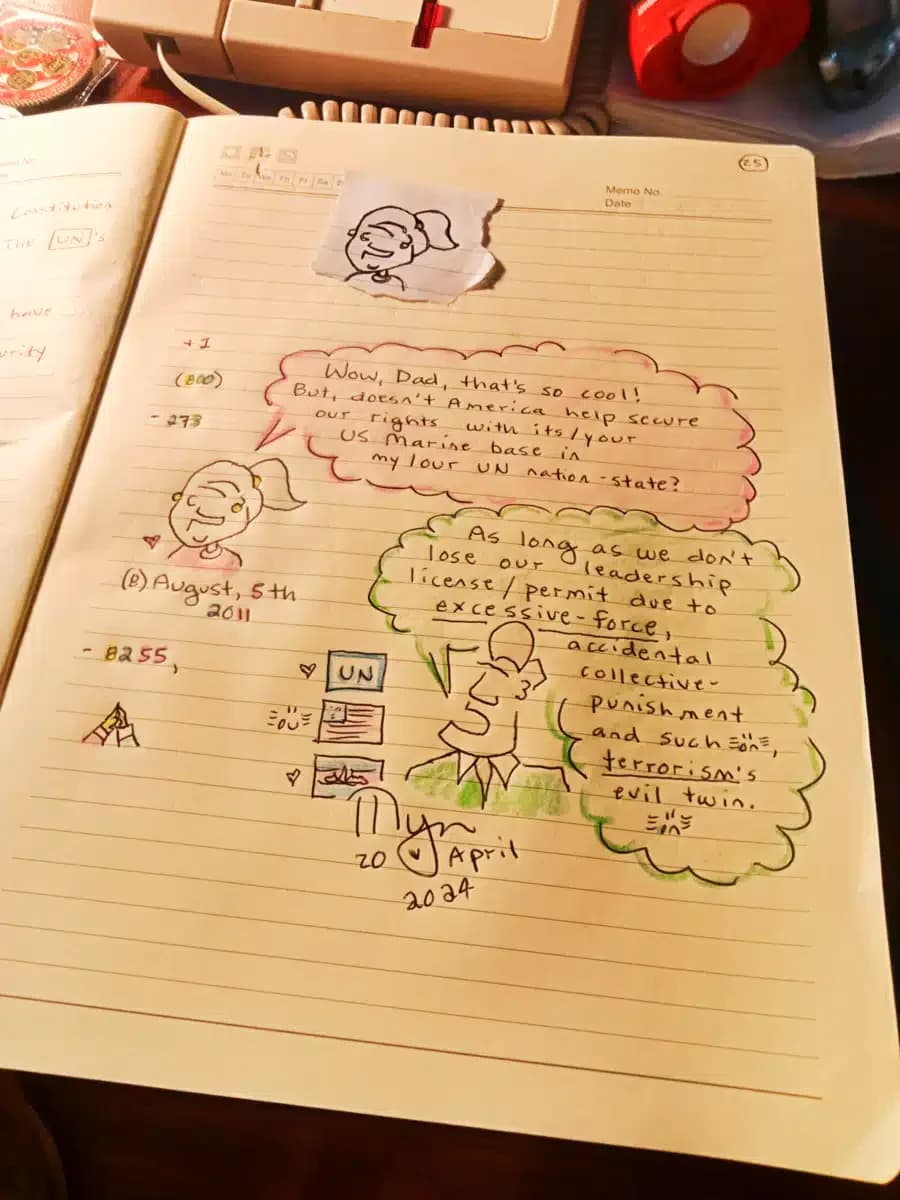 Memo No.
Constitution
The UN's
have
urity
25
Mo Tu We Th Fr Sa
Memo No.
Date
+1
(800)
- 273
Wow, Dad, that's so cool!
But, doesn't America help secure
our rights with its/your
US Marine base in
my/our UN nation-state?
(B) August, 5th
2011
- 8255,
As long as we don't
lose our leadership
license/permit due to
excessive-force,
accidental
collective-
punishment
and such
terrorism's
evil twin.
UN
20 April
2024